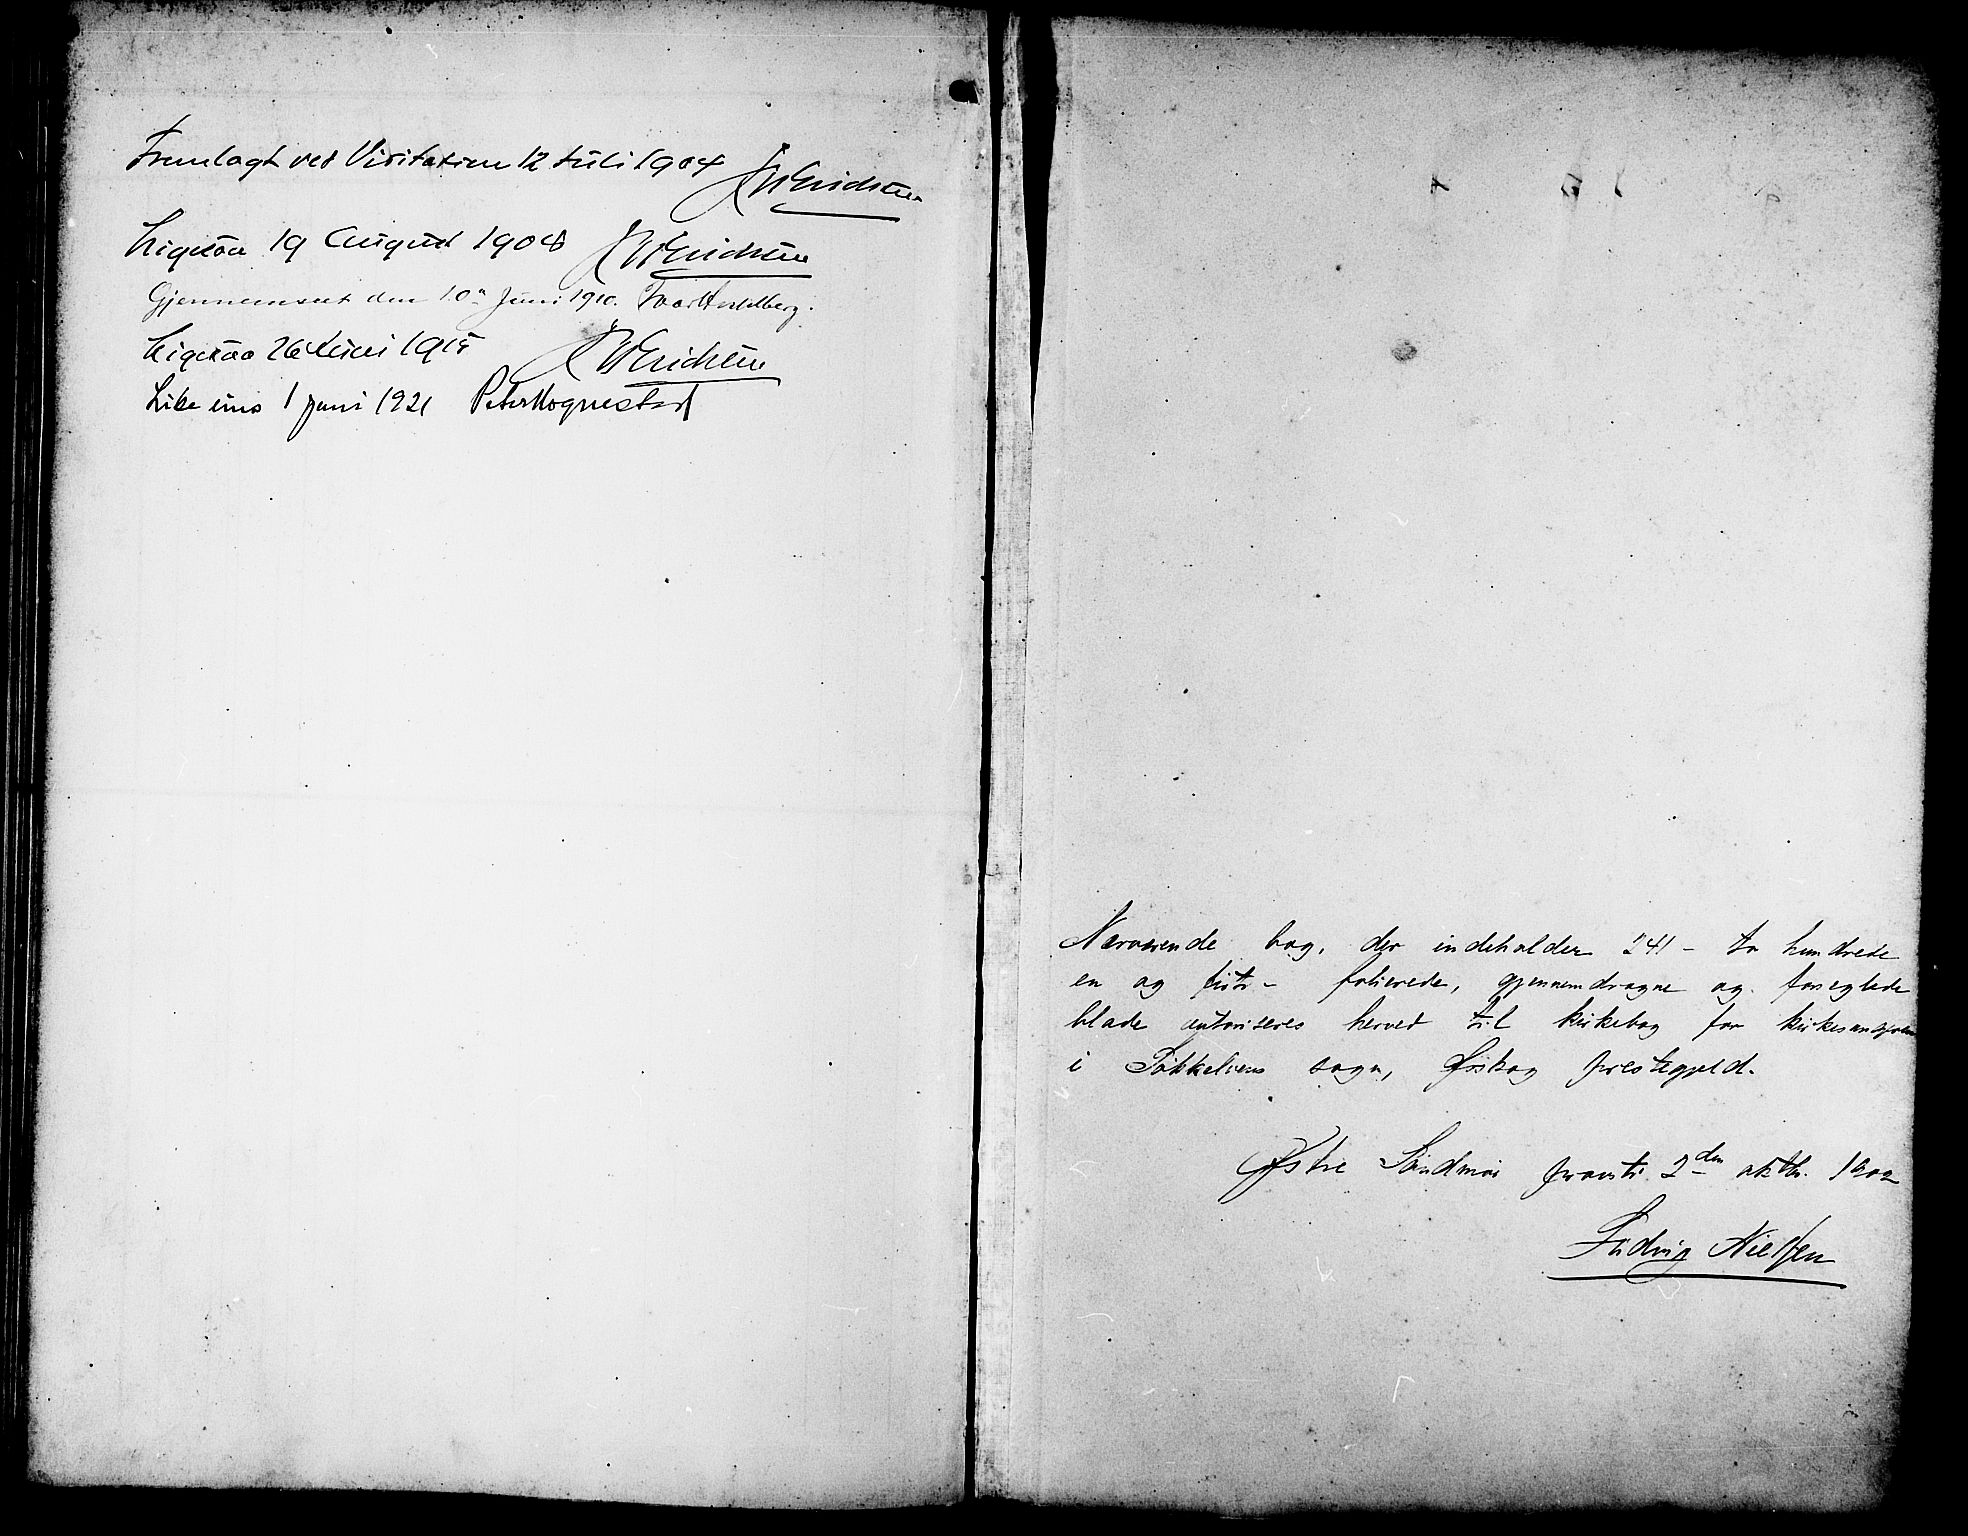 Fremlagt ved Visitatsen 12 Juli 1904 JWErichsen
Ligesaa 19 August 1908 JWErichsen
Gjennemseet den 10de Juni 1910. Ivar Hesselberg.
Ligesaa 26 Juni 1915 JWErichsen
Like eins 1 juni 1921 Peter Hognestad
Nærværende bog, der indeholder 241 - to hundrede
en og firti - folierede, gjennemdragne og forseglede
blade autoriseres herved til kirkebog for kirkesangeren
i Søkkelvens sogn, Ørskog prestegjeld.
Østre Søndmør provsti 2den oktbr. 1902
Ludvig Nielsen